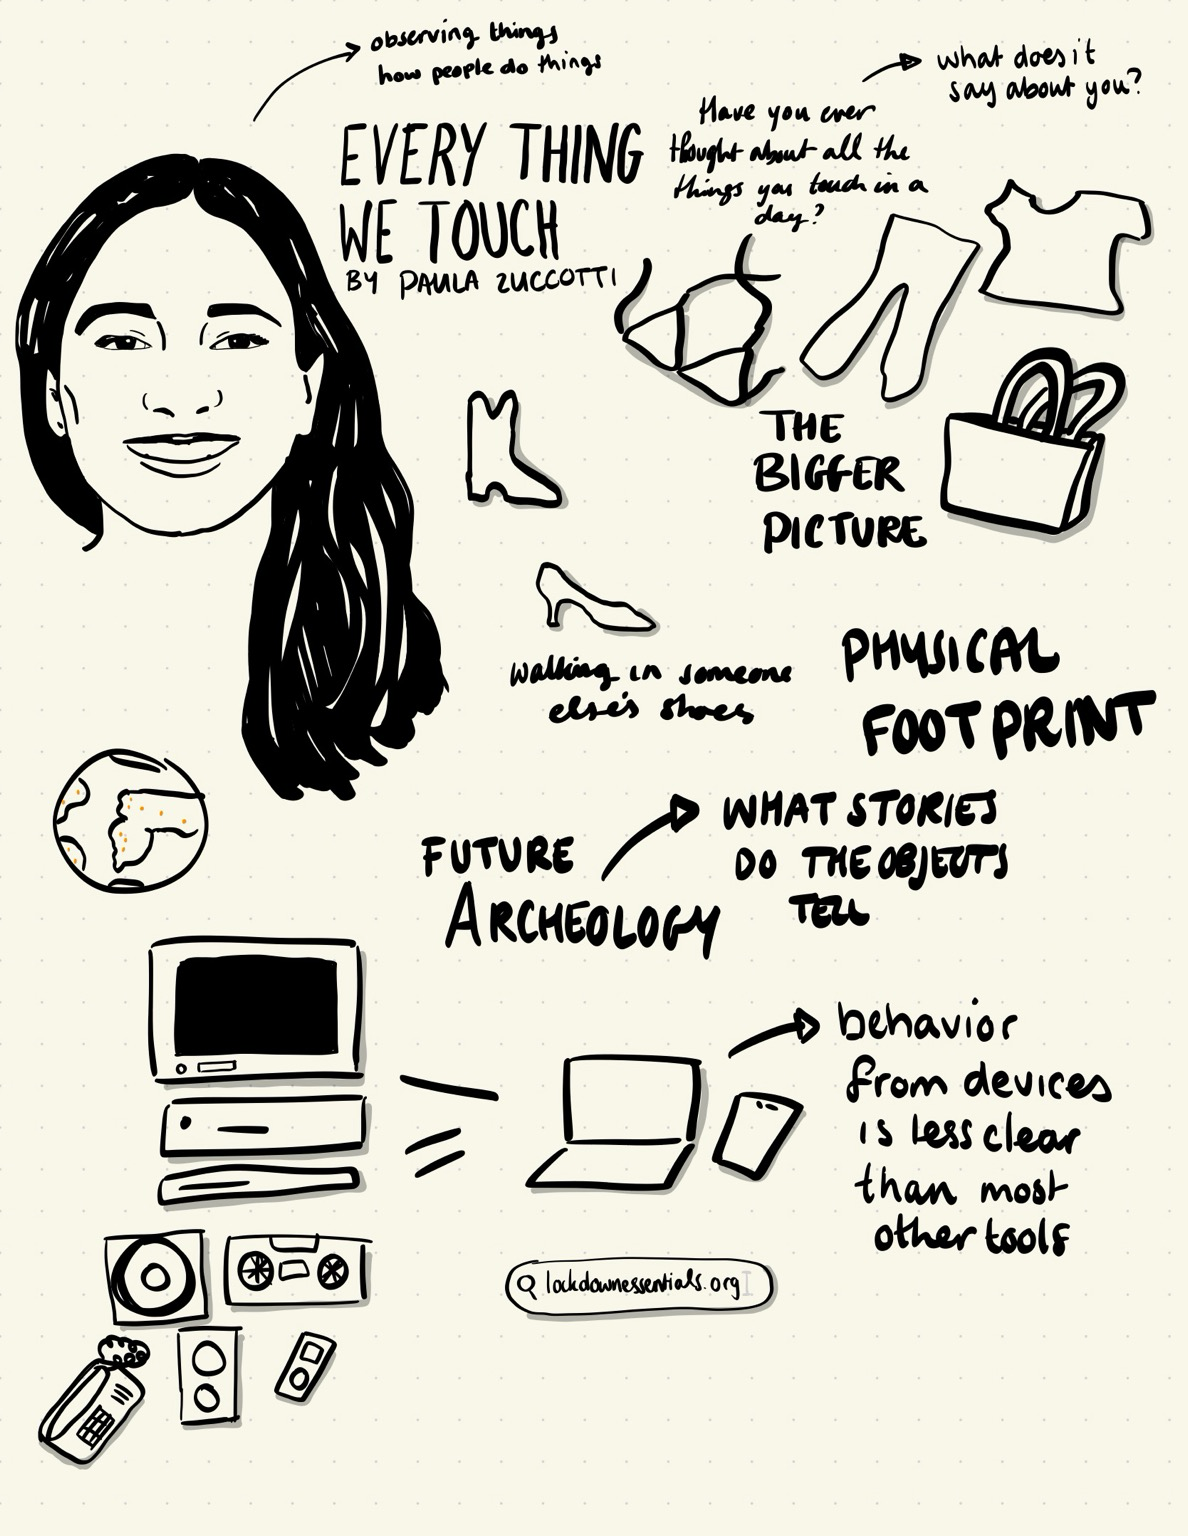 observing things
how people do things
EVERY THING
WE TOUCH
BY PAULA ZUCCOTTI
what does it
say about you?
Have you ever
thought about all the
things you touch in a
day?
THE
BIGGER
PICTURE
walking in someone
else's shoes
PHYSICAL
FOOTPRINT
FUTURE
ARCHEOLOGY
WHAT STORIES
DO THE OBJECTS
TELL
behavior
from devices
is less clear
than most
other tools
lockdownessentials.org